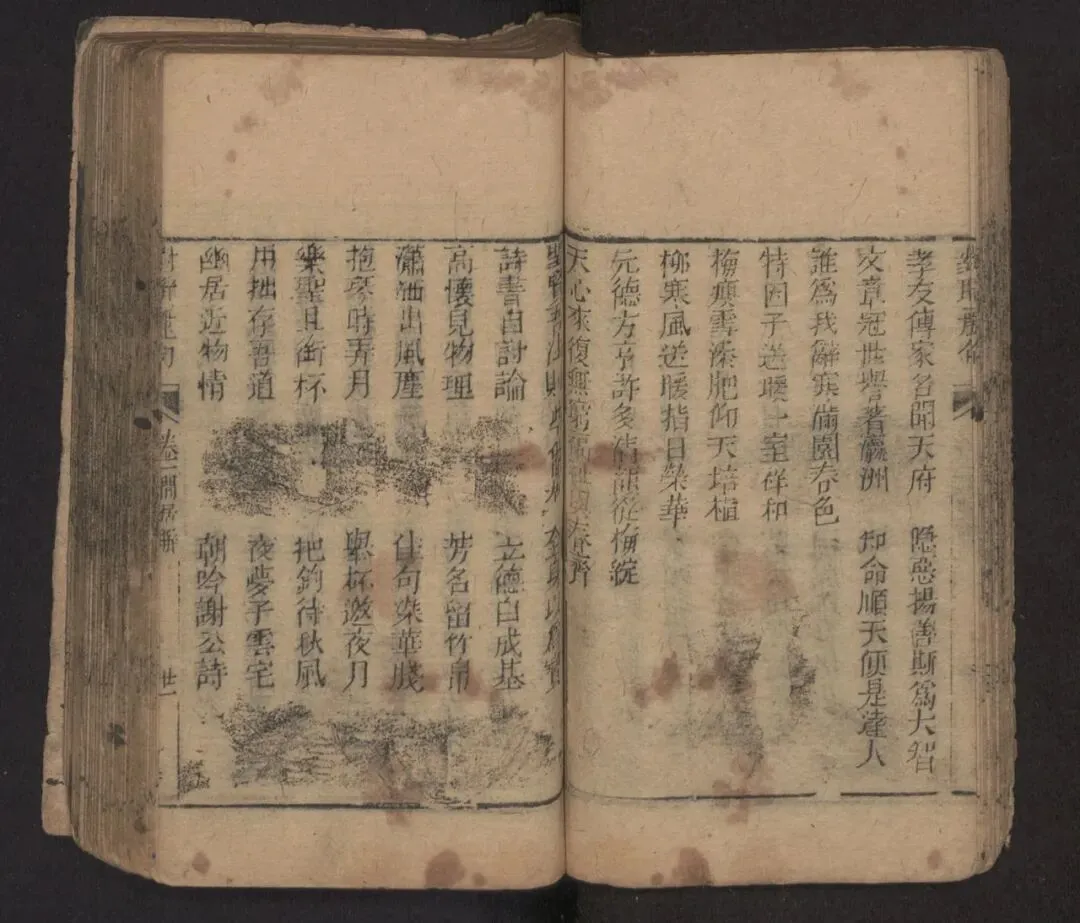 孝友傳家名聞天府 隱惡揚善斯爲大智
文章冠世譽著瀛洲 知命順天便是達人
誰爲我辭寒滿園春色
特因子送暖一室祥和
梅寒雪湊肥仰天培植
柳寒風送暖指日榮華
元德方亨許多清韻從梅綻
天心來復無窮與春齊
聖賢 法則 以爲寶
詩書自討論 立德自成基
高懷見物理 芳名留竹帛
瀟洒出風塵 佳句染華牋
抱琴時弄月 舉杯邀夜月
樂聖且銜杯 把釣待秋風
用拙存吾道 夜夢子雲宅
幽居近物情 朝吟謝公詩
卷一閒居 廿一